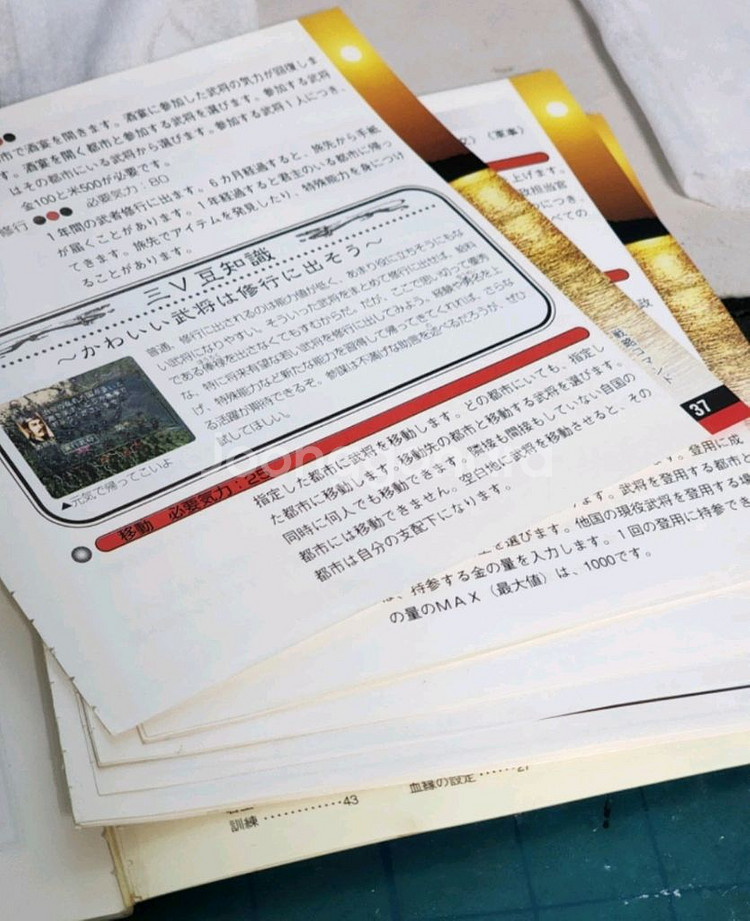 市で酒宴を開きます。酒宴に参加した武将の気力が回復しま
す。酒宴を開く都市と参加する武将を選びます。参加する武将
はその都市にいる武将から選びます。参加する武将1人につき、
金100と米500が必要です。
修行 必要気力：80
1年間の武者修行に出ます。6カ月経過すると、旅先から手紙
が届くことがあります。1年経過すると君主のいる都市に帰っ
てきます。旅先でアイテムを発見したり、特殊能力を身につけ
ることがあります。
三V豆知識
～かわいい武将は修行に出そう～
普通、修行に出されるのは能力値が低く、あまり役に立ちそうにもな
い武将になりやすい。そういった武将をまとめて修行に出せば、給料
である俸禄を出さなくてもすむからだ。だが、ここで思い切って優秀
な、特に将来有望な若い武将を修行に出してみよう。経験や
げ、特殊能力など新たな能力を習得して帰ってきてくれれば、さらな
る活躍が期待できるぞ。参謀は不満げな助言を述べるだろうが、ぜひ
試してほしい。
▲元気で帰ってこいよ
移動 必要気力：25
指定した都市に武将を移動します。どの都市にいても、指定し
た都市に移動します。移動先の都市と移動する武将を選びます。
同時に何人でも移動できます。隣接も間接もしていない自国の
都市には移動できません。空白地に武将を移動させると、その
都市は自分の支配下になります。
（軍事）
上げます。
政担当官
につき、
べての
政
戦略コマンド
37
登用に成
ます。武将を登用する都市と
を選びます。他国の現役武将を登用する場
、持参する金の量を入力します。1回の登用に持参でき
の量のMAX（最大値）は、1000です。
43
訓練
血縁の設定
27
Joonggonara